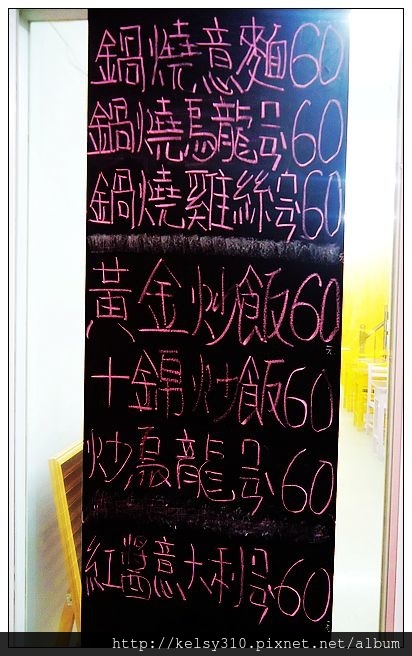 鍋燒意麵60
鍋燒烏龍另60
鍋燒雞絲另60
黃金炒飯60
十錦炒飯60
炒烏龍另60
紅醬意大利另60
http://kelsy310.pixnet.net/album